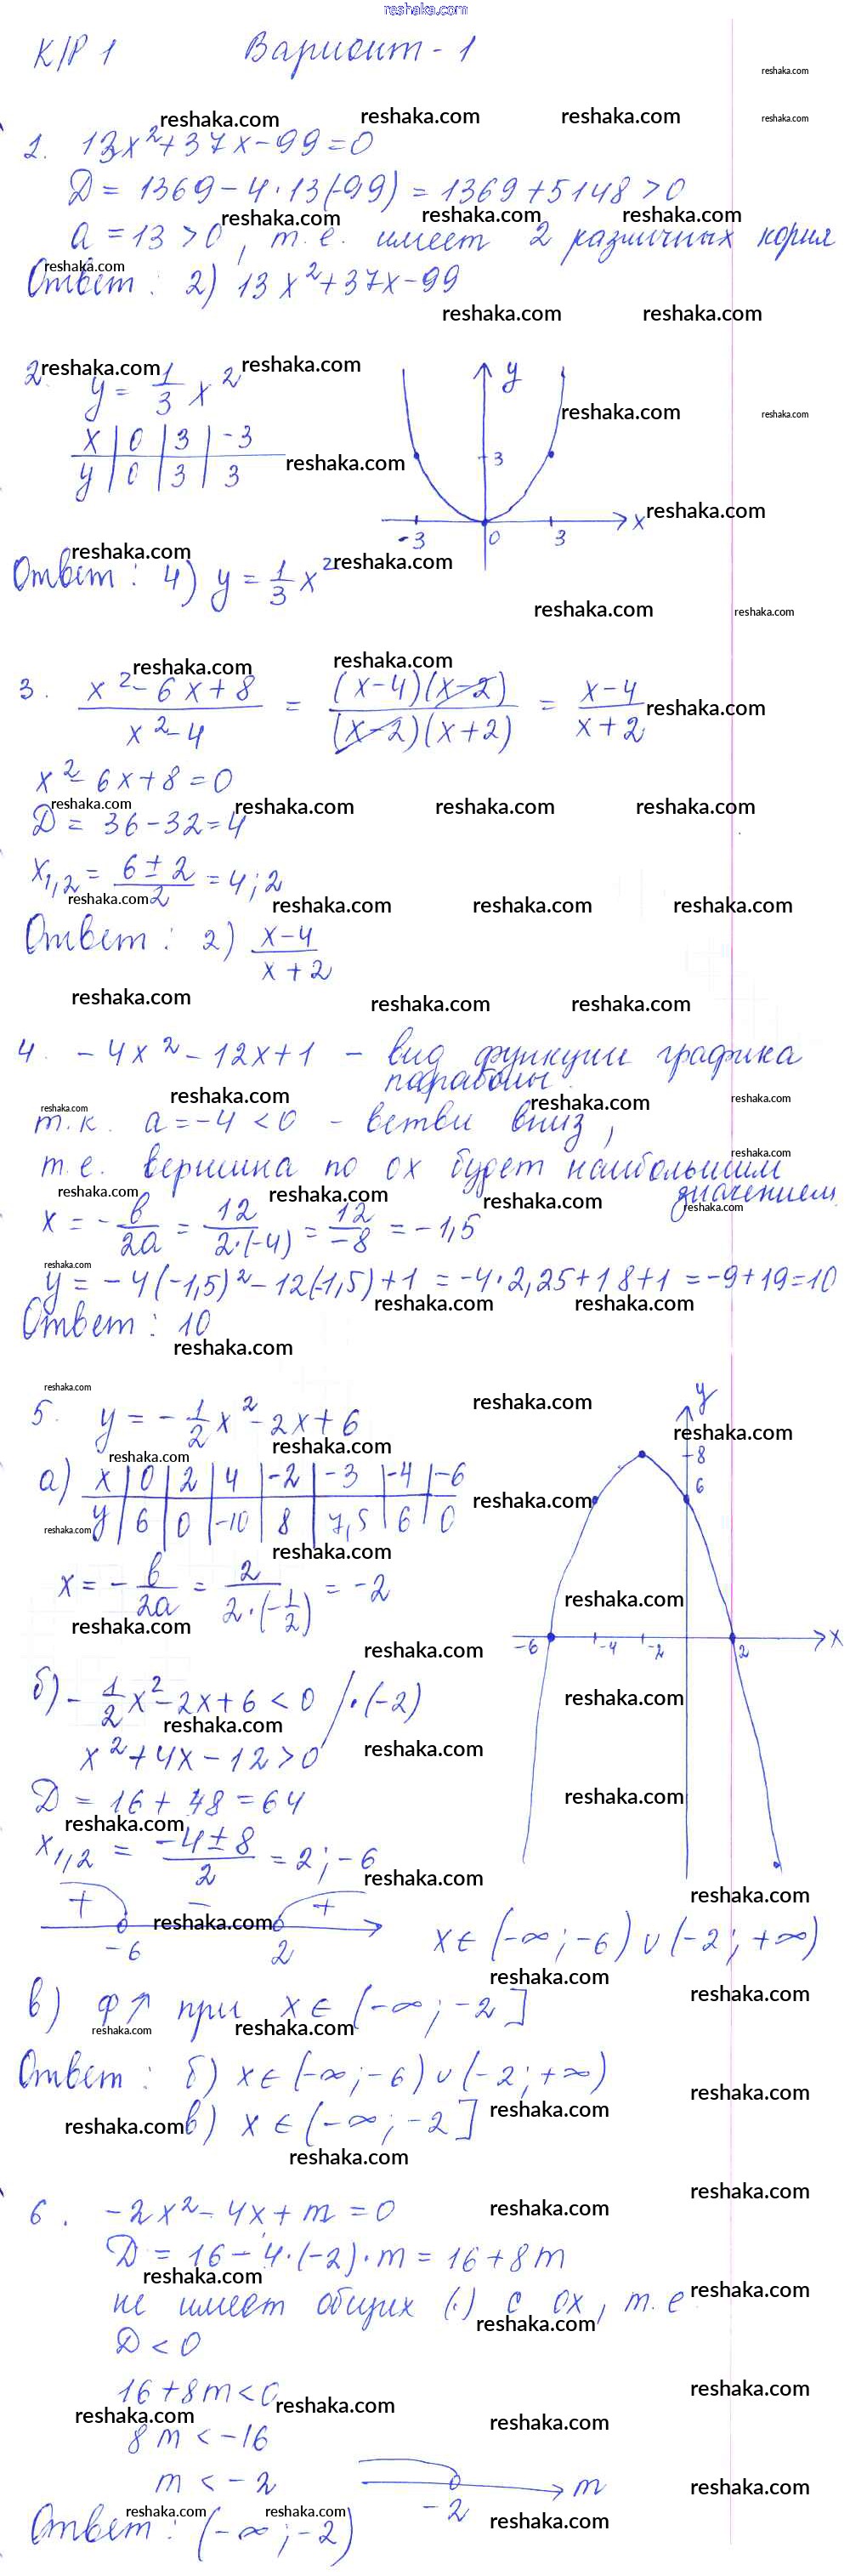 reshaka.com
К/Р 1 Вариант - 1
1. 13x²+37x-99=0
D = 1369-4·13(-99) = 1369+5148>0
a = 13 >0, т.е. имеет 2 различных корня
Ответ: 2) 13x²+37x-99
2. y = 1/3 x²
x | 0 | 3 | -3
y | 0 | 3 | 3
y
3
-3 0 3 x
Ответ: 4) y = 1/3 x²
3. (x²-6x+8)/(x²-4) = ((x-4)(x-2))/((x-2)(x+2)) = (x-4)/(x+2)
x²-6x+8=0
D = 36-32=4
x₁,₂ = (6±2)/2 = 4;2
Ответ: 2) (x-4)/(x+2)
4. -4x²-12x+1 - вид функции графика
параболы
т.к. a=-4<0 - ветви вниз,
т.е. вершина по ox будет наибольшим
значением
x = -b/2a = 12/(2·(-4)) = 12/-8 = -1,5
y = -4(-1,5)²-12(-1,5)+1 = -4·2,25+18+1 = -9+19=10
Ответ: 10
5. y = -1/2 x²-2x+6
а) x | 0 | 2 | 4 | -2 | -3 | -4 | -6
y | 6 | 0 | -10 | 8 | 7,5 | 6 | 0
x = -b/2a = 2/(2·(-1/2)) = -2
y
8
6
-6 -4 -2 2 x
б) -1/2 x²-2x+6 < 0 /·(-2)
x²+4x-12>0
D = 16+48=64
x₁,₂ = (-4±8)/2 = 2;-6
+ - +
-6 2 x∈(-∞;-6)∪(-2;+∞)
в) ф↑ при x∈(-∞;-2]
Ответ: б) x∈(-∞;-6)∪(-2;+∞)
в) x∈(-∞;-2]
6. -2x²-4x+m=0
D = 16-4·(-2)·m = 16+8m
не имеет общих (·) с ox, т.е
D<0
16+8m<0
8m<-16
m<-2
-2 m
Ответ: (-∞;-2)